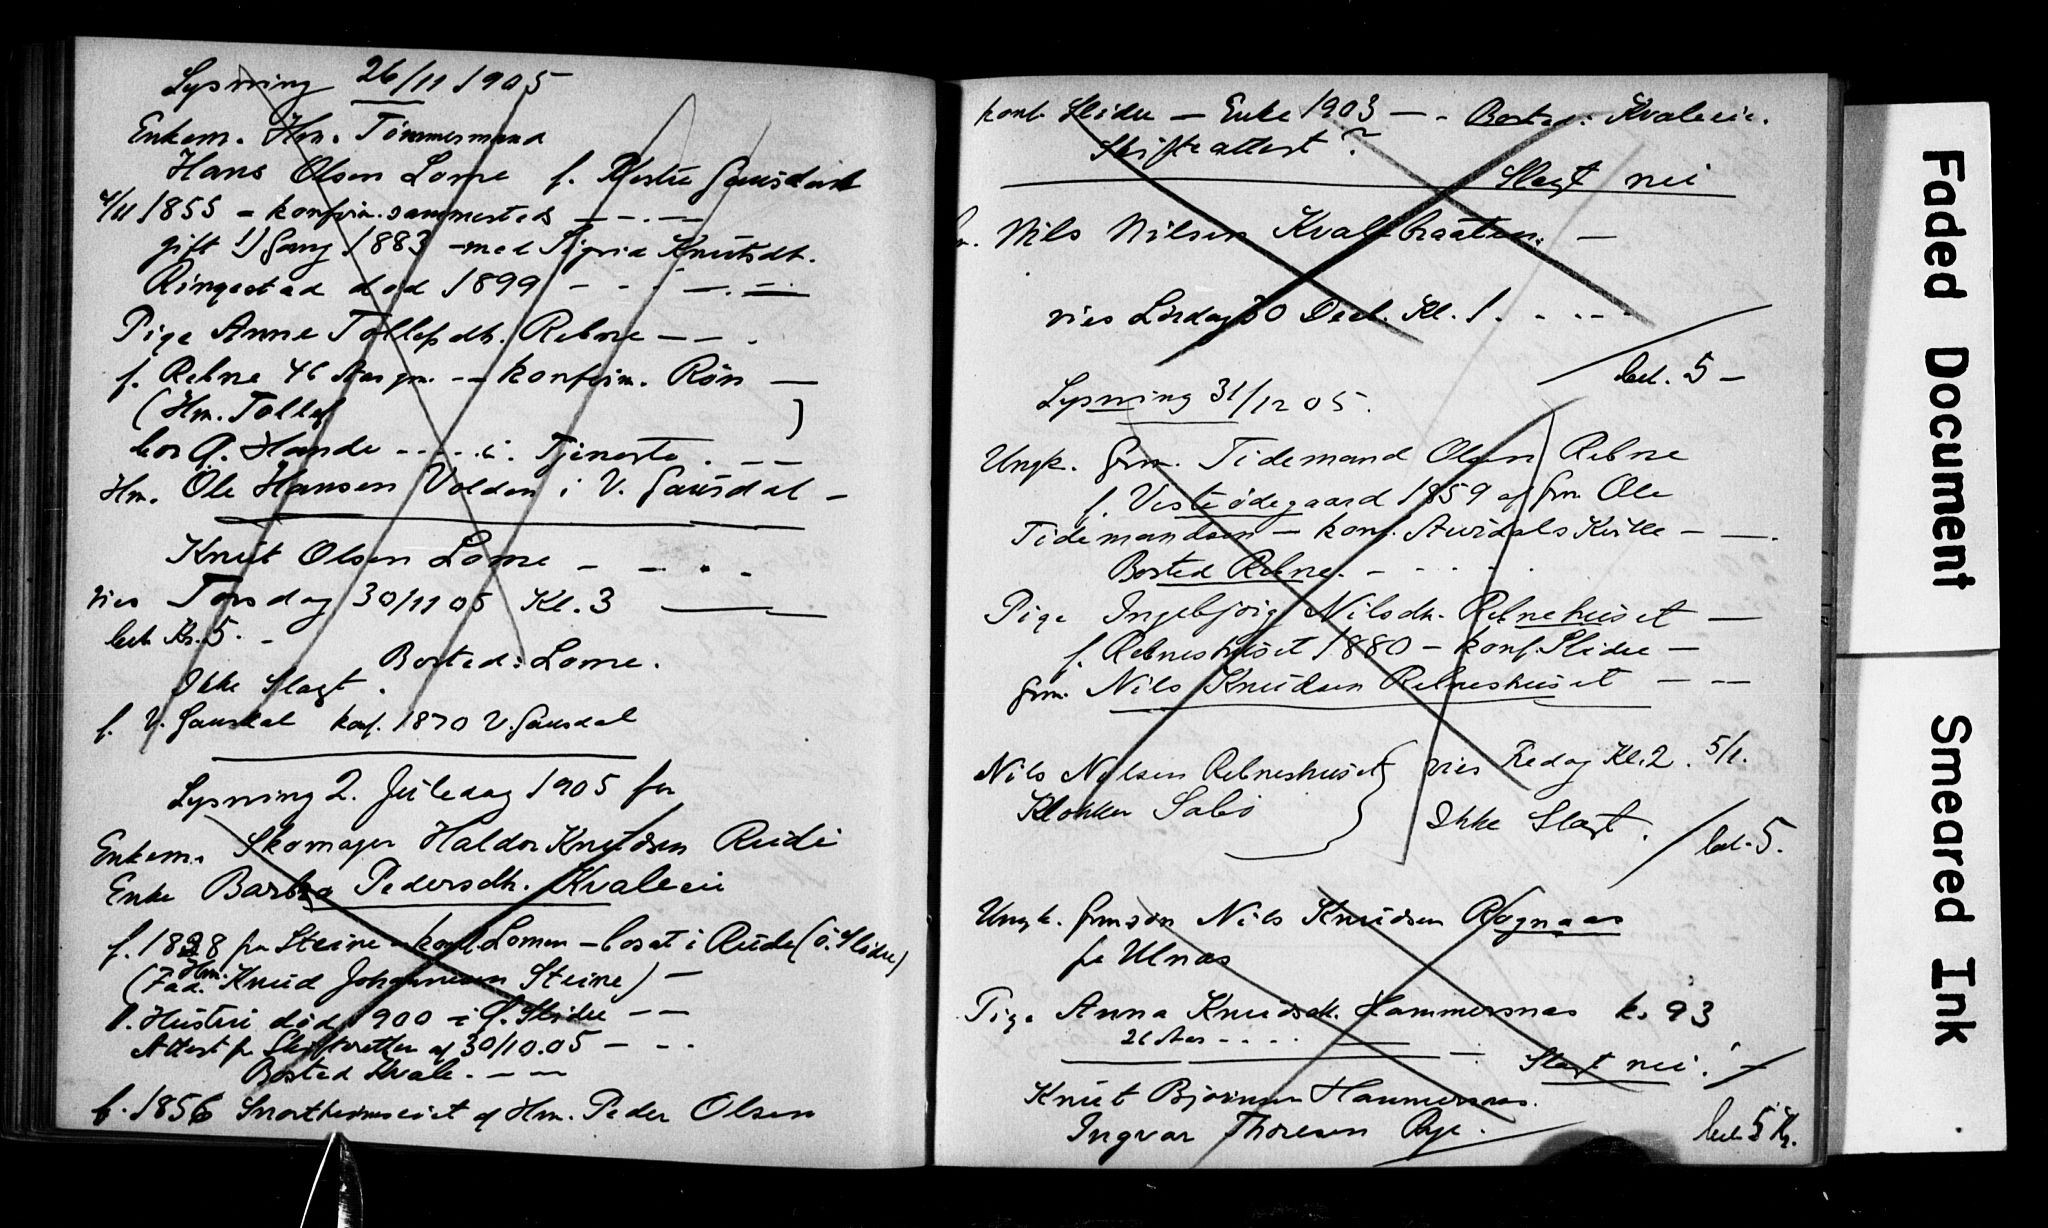 Lysning 26/11 1905
Enkem. Hm. Tømmermand
Hans Olsen Lome f. Gausdal
4/11 1855 - konfirm. sammesteds - - . -
gift 1) Gang 1883 - med Sigrid Knutsdt.
Ringestad død 1899 - - - - . -
Pige Anne Tollefsdt. Rebne - - .
f. Rebne 46 Aar gm. - - konfirm. Røn -
(Hm. Tollef )
bor Ø. Hande - - . . i . Tjeneste . - -
Hm. Ole Hansen Volden i V. Gausdal -
Knut Olsen Lome - - . -
vies Torsdag 30/11 05 Kl. 3
bet. Kr. 5. -
Bosted: Lome.
Ikke Slægt.
f. V. Gausdal konf. 1870 V. Gausdal
Lysning 2. Juledag 1905 for
Enkem. Skomager Haldor Knudsen Rudi
Enke Barbra Pedersdt. Kvaleeie
f. 1828 fra Steine - konf. Lomen - bosat i Rude (Ø. Slidre)
(Fad. Hm. Knud Johannesen Steine) -
1. Hustru død 1900 i Ø. Slidre - -
Attest fr. Skifteretten af 30/10.05 - - -
Bosted Kvale. - - -
f. 1856 af Hm. Peder Olsen
konf. Slidre - Enke 1903 - - Bosted: Kvaleeie.
Skifteattest?
Slægt nei
Nils Nilsen Kvalebraaten. -
vies Lørdag 30 Decb. Kl. 1. . - . -
bet. 5 -
Lysning 31/12 05.
Ungk. Grm. Tidemand Olsen Rebne
f. Vesteødegaard 1859 af Grm. Ole
Tidemandsen - konf. Aurdals Kirke - - .
Bosted Rebne. - . . . .
Pige Ingebjørg Nilsdt. Rebnehuset -
f. Rebneshuset 1880 - konf. Slidre -
Grm. Nils Knudsen Rebneshuset - - -
Nils Nilsen Rebneshuset } vies Fredag Kl. 2. 5/1.
Klokker Sæbø
Ikke Slægt.
bet. 5.
Ungk. Grmsøn Nils Knudsen Rognaas
fra Ulnæs
Pige Anna Knudsdt. Hammersnæs k. 93
26 Aar - . . .
Slægt nei!
Knut Bjørnsen Hammersnæs.
Ingvar Thoresen Rye.
bet. 5 Kr.
Faded Document
Smeared Ink